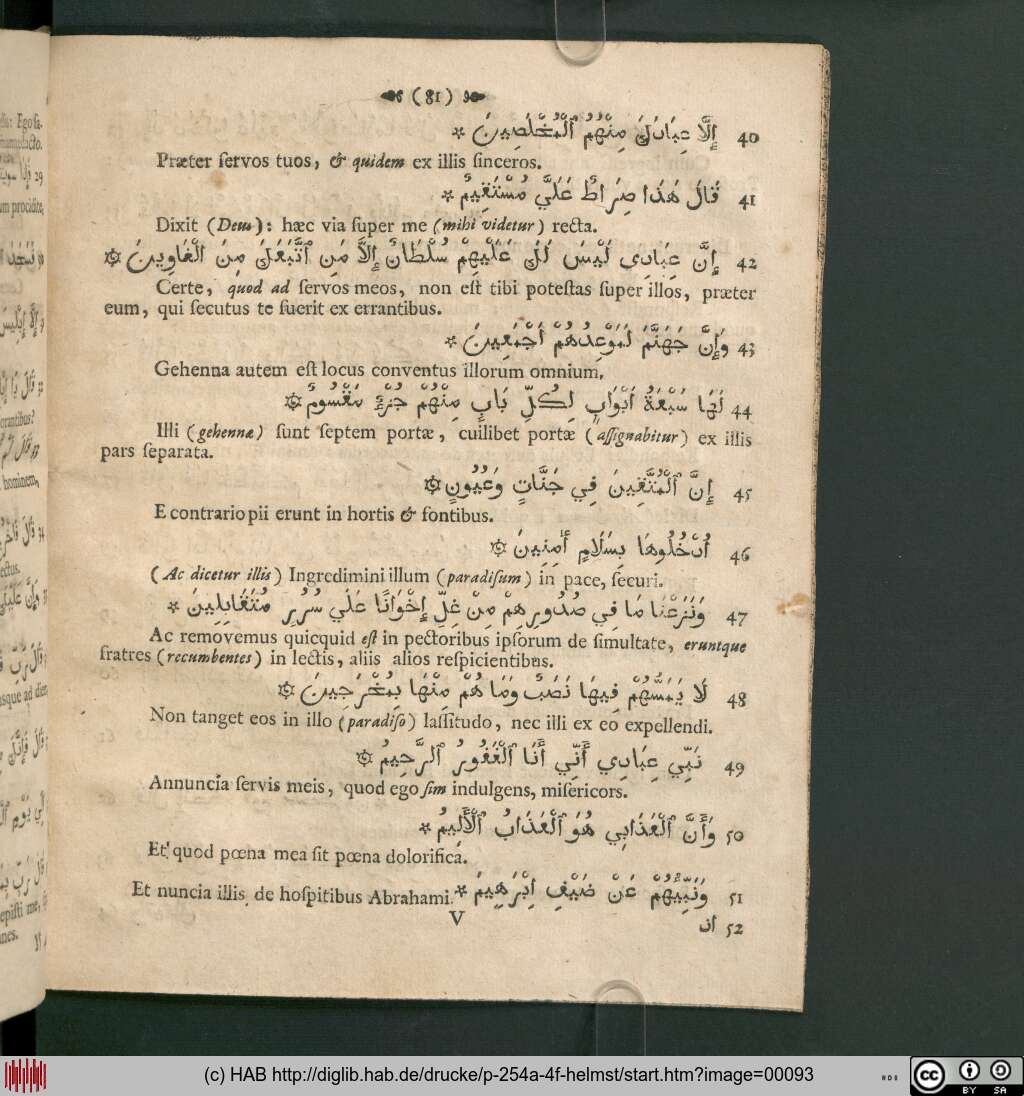 (81)
إِلَّا عِبَادَكَ مِنْهُمُ ٱلْمُخْلَصِينَ * 40
Præter ſervos tuos, & quidem ex illis ſinceros.
قَالَ هَذَا صِرَاطٌ عَلَيَّ مُسْتَقِيمٌ * 41
Dixit (Deus): hæc via ſuper me (mihi videtur) recta.
إِنَّ عِبَادِي لَيْسَ لَكَ عَلَيْهِمْ سُلْطَانٌ إِلَّا مَنِ ٱتَّبَعَكَ مِنَ الْغَاوِينَ ۞ 42
Certe, quod ad ſervos meos, non eſt tibi poteſtas ſuper illos, præter
eum, qui ſecutus te fuerit ex errantibus.
وَإِنَّ جَهَنَّمَ لَمَوْعِدُهُمْ أَجْمَعِينَ * 43
Gehenna autem eſt locus conventus illorum omnium.
لَهَا سَبْعَةُ أَبْوَابٍ لِكُلِّ بَابٍ مِنْهُمْ جُزْءٌ مَقْسُومٌ ۞ 44
Illi (gehennæ) ſunt ſeptem portæ, cuilibet portæ (aſſignabitur) ex illis
pars ſeparata.
إِنَّ ٱلْمُتَّقِينَ فِي جَنَّاتٍ وَعُيُونٍ ۞ 45
E contrario pii erunt in hortis & fontibus.
أُدْخُلُوهَا بِسَلَامٍ أَمِنِينَ ۞ 46
(Ac dicetur illis) Ingredimini illum (paradiſum) in pace, ſecuri.
وَنَزَعْنَا مَا فِي صُدُورِهِمْ مِنْ غِلٍّ إِخْوَانًا عَلَي سُرُرٍ مُتَقَابِلِينَ * 47
Ac removemus quicquid eſt in pectoribus ipſorum de ſimultate, eruntque
fratres (recumbentes) in lectis, aliis alios reſpicientibus.
لَا يَمَسُّهُمْ فِيهَا نَصَبٌ وَمَا هُمْ مِنْهَا بِمُخْرَجِينَ ۞ 48
Non tanget eos in illo (paradiſo) laſſitudo, nec illi ex eo expellendi.
نَبِّي عِبَادِي أَنِّي أَنَا ٱلْغَفُورُ ٱلرَّحِيمُ ۞ 49
Annuncia ſervis meis, quod ego ſim indulgens, miſericors.
وَأَنَّ ٱلْعَذَابِي هُوَ ٱلْعَذَابُ ٱلْأَلِيمُ * 50
Et quod pœna mea ſit pœna dolorifica.
وَنَبِّئْهُمْ عَنْ ضَيْفِ إِبْرَهِيمَ * 51
Et nuncia illis de hoſpitibus Abrahami.
V
52 اذ
(c) HAB http://diglib.hab.de/drucke/p-254a-4f-helmst/start.htm?image=00093
cc BY SA